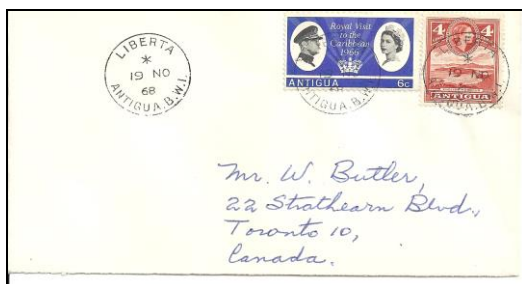 LIBERTA
19 NO
68
ANTIGUA.B.W.I.
Royal Visit
to the
Caribbean
1966
ANTIGUA
6c
4c
19 NO
ANTIGUA
Mr. W. Butler,
22 Strathearn Blvd.,
Toronto 10,
Canada.